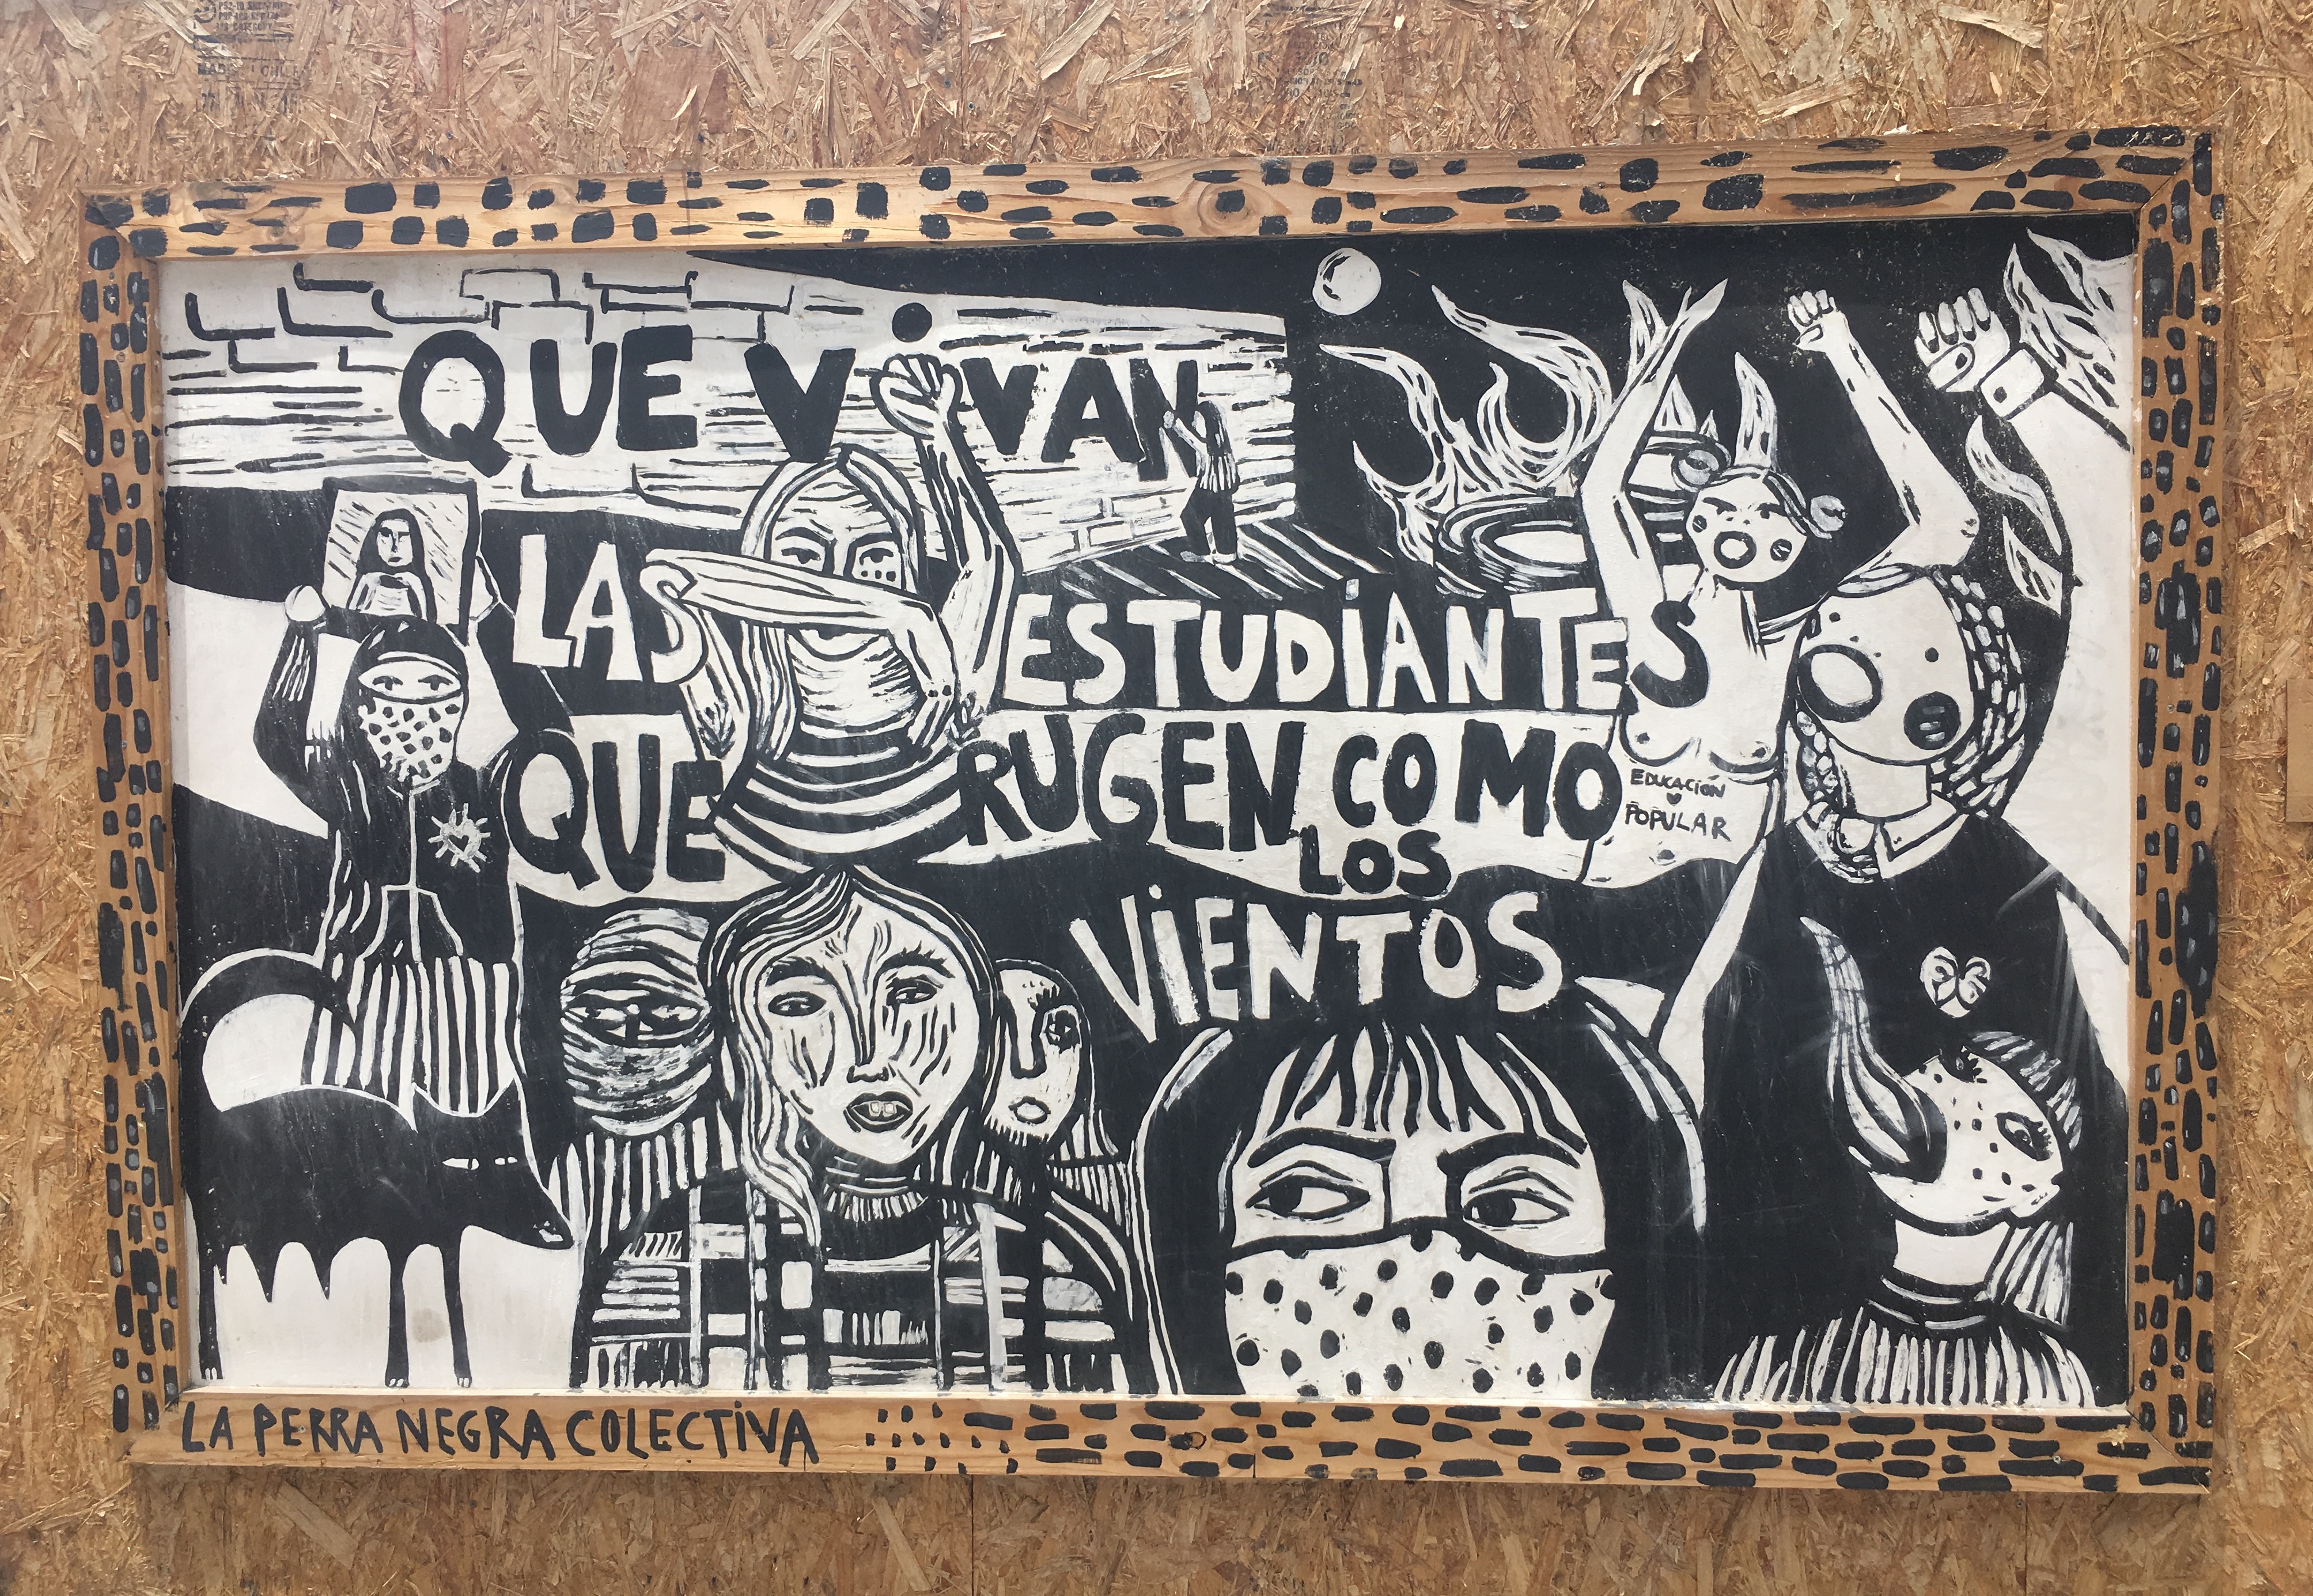 QUE ViVAN
LAS ESTUDiANTES
QUE RUGEN COMO
LOS
ViENTOS
EDUCACIÓN
POPULAR
LA PERRA NEGRA COLECTiVA